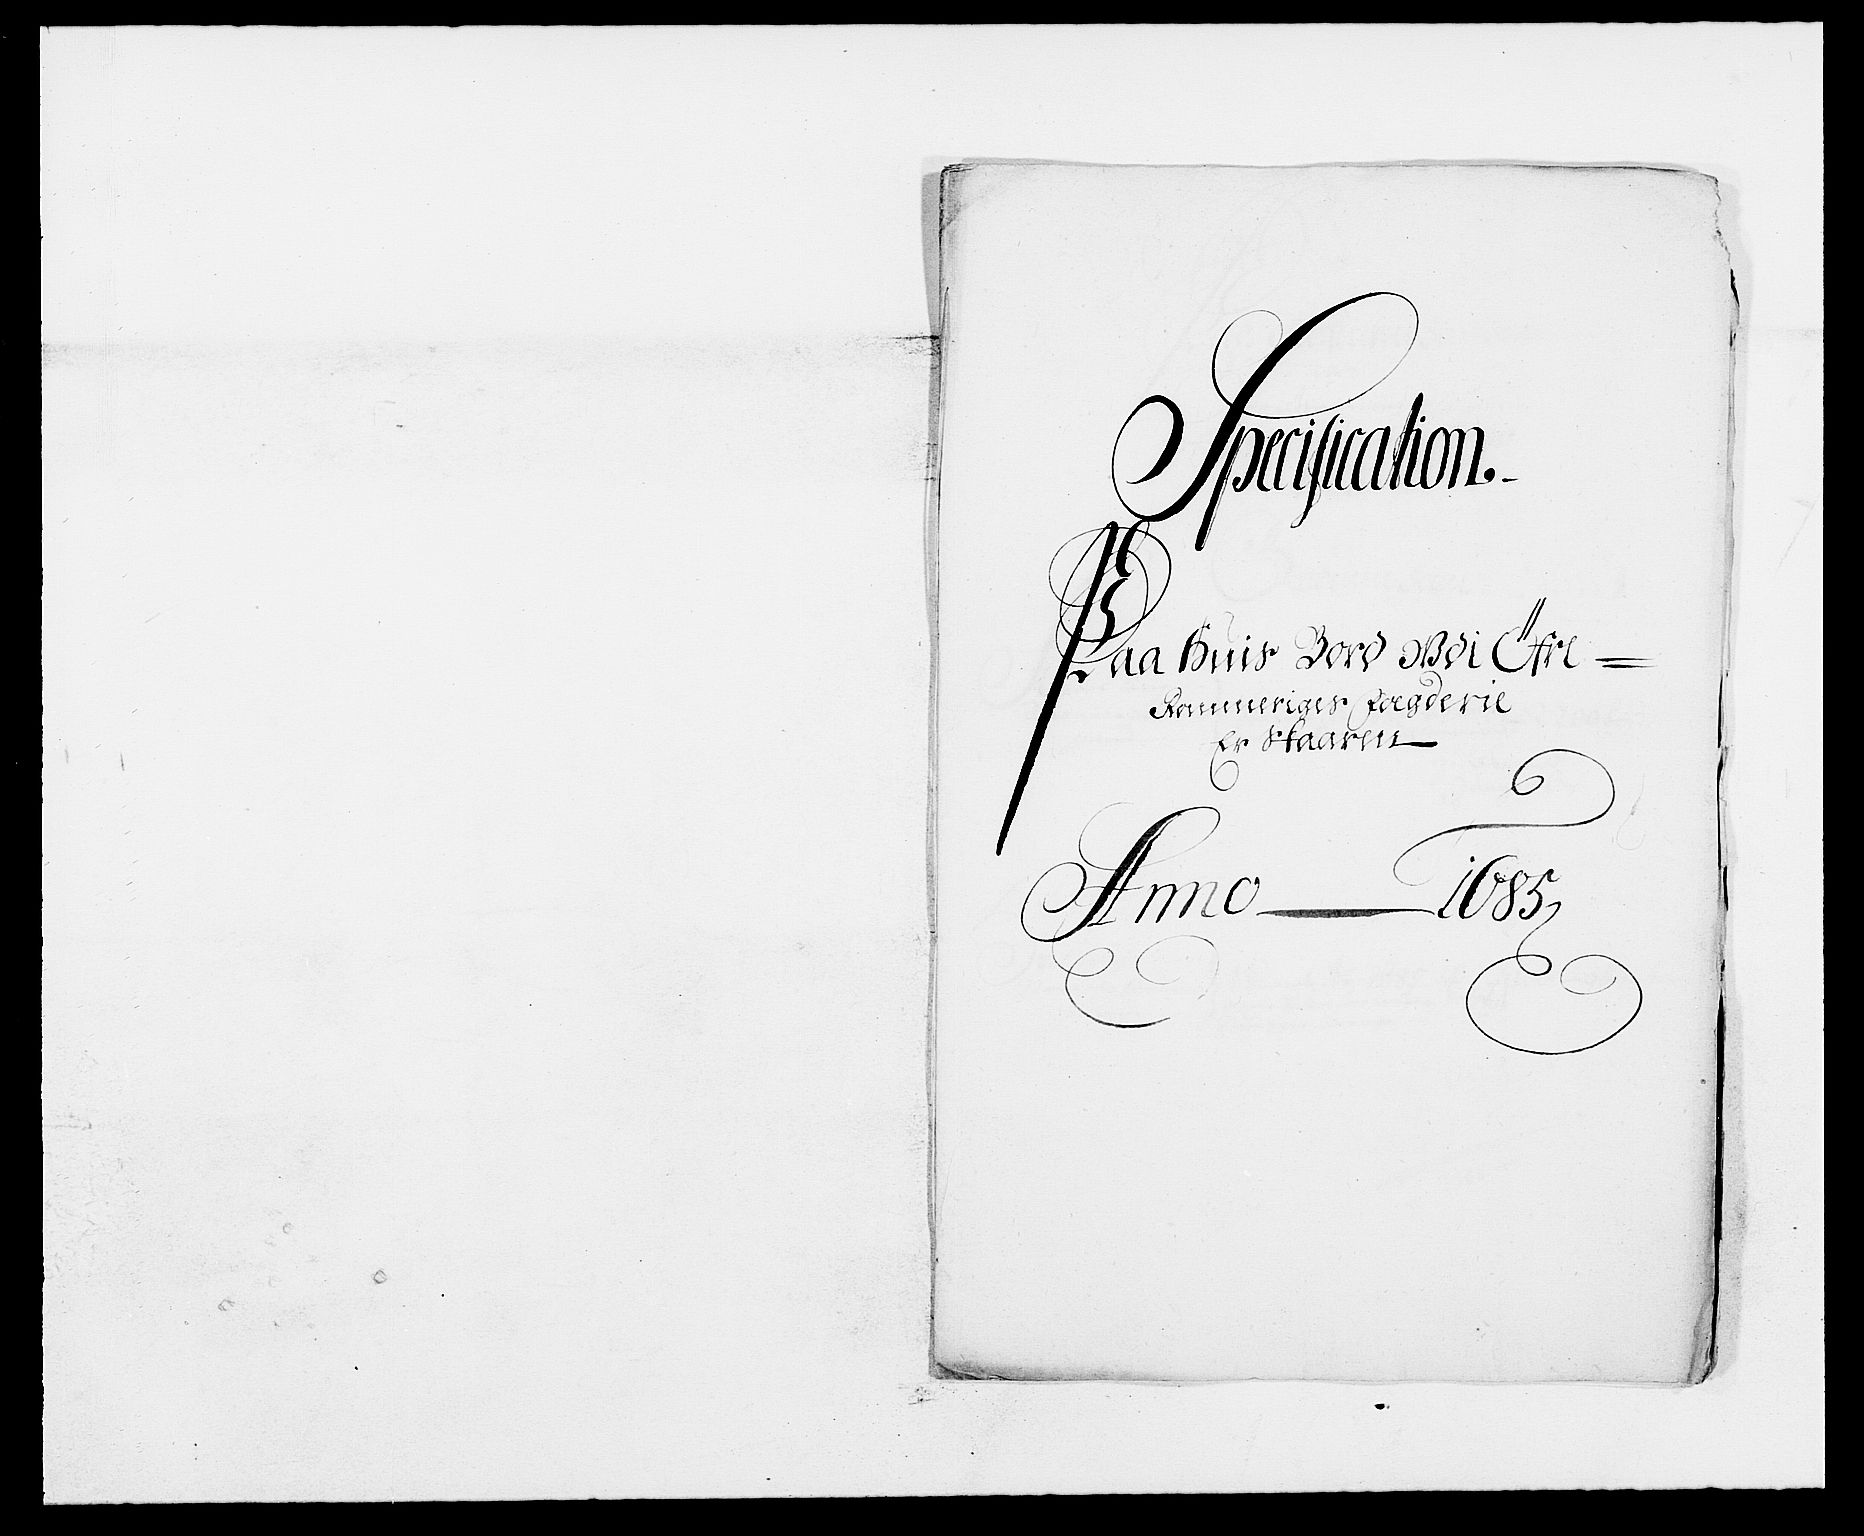 Specification.
Paa huis Bord Wdi Öfre =
Rommeriges fogderie
Er skaaren
Anno 1685